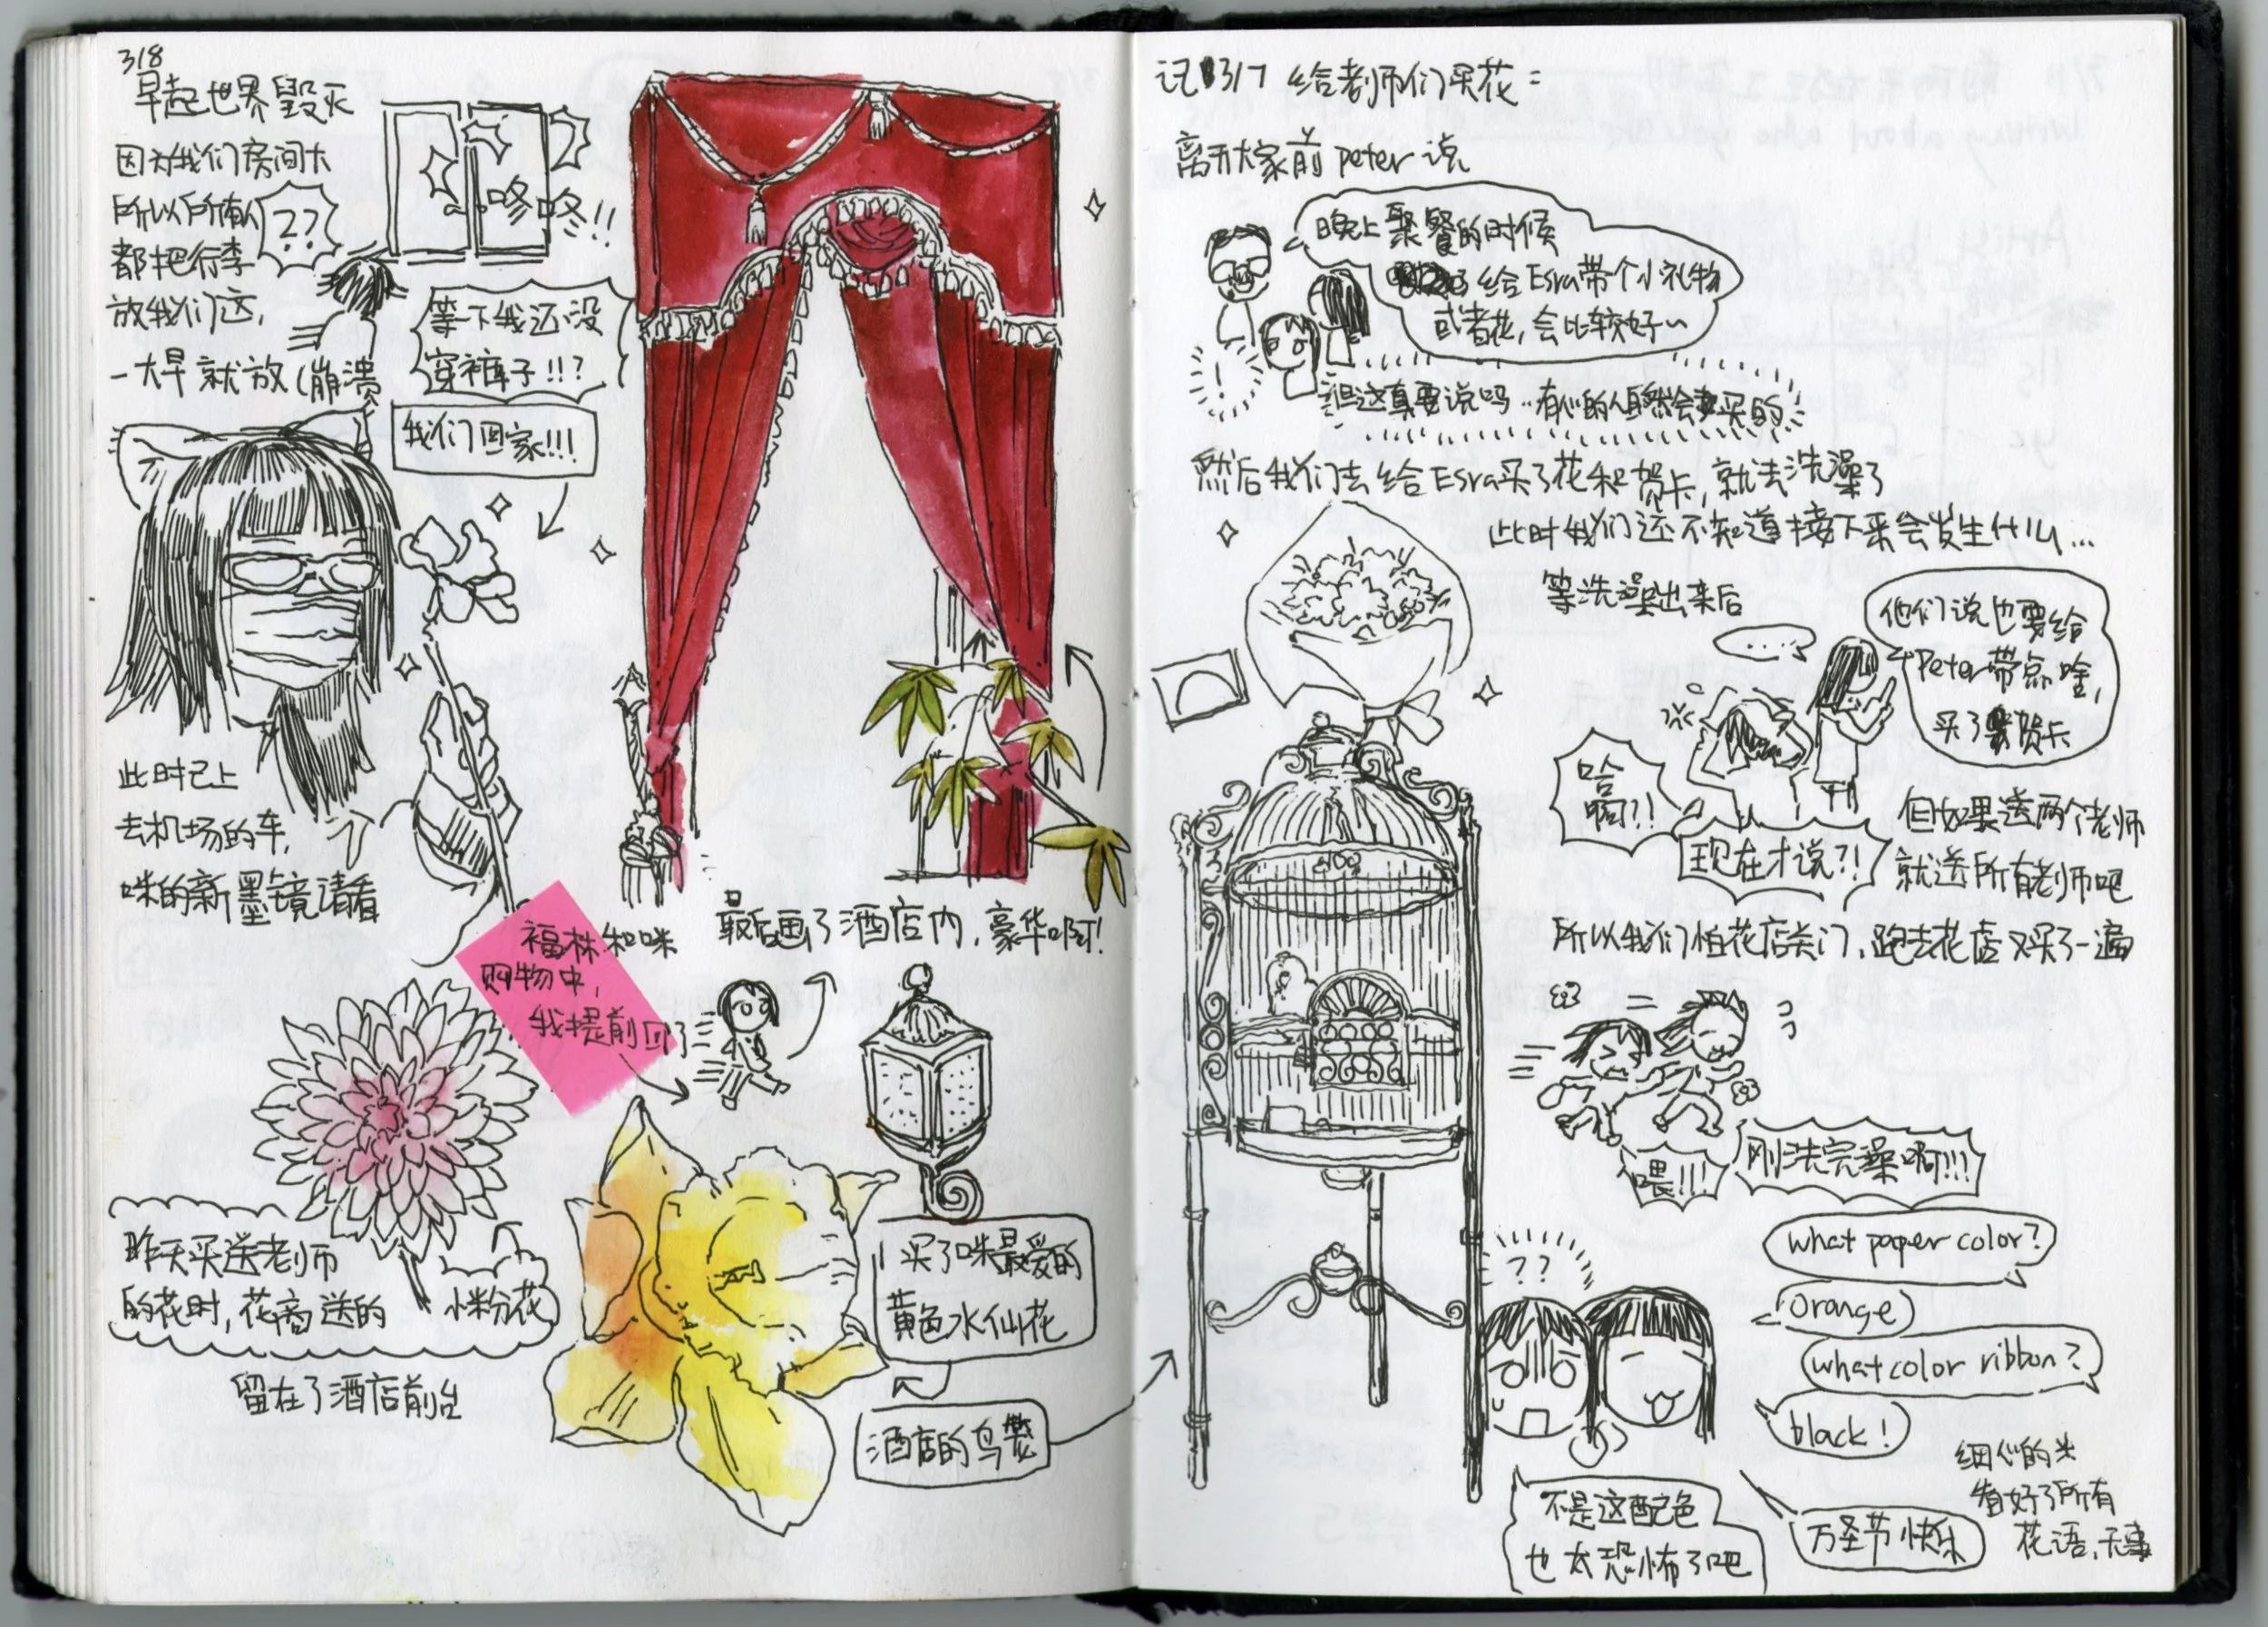 3/8
早起世界毁灭
因为我们房间大
所以所有人
都把行李
放我们这,
一大早就放(崩溃
??
咚咚!!
等下我还没
穿裤子!!?
我们回家!!!
此时已上
去机场的车,
咪的新墨镜请看
福株和咪
购物中,
我提前回了
最后画了酒店内,豪华啊!
昨天买送老师
的花时,花商送的
小粉花
留在了酒店前台
买了咪最爱的
黄色水仙花
酒店的鸟笼
记3/7 给老师们买花:
离开大家前peter说
晚上聚餐的时候
给Esra带个小礼物
或者花,会比较好~
!
但这真要说吗…有心的人自然会买的
然后我们去给Esra买了花和贺卡,就去洗澡了
此时我们还不知道接下来会发生什么...
等洗澡出来后
......
他们说也要给
Peter带点啥,
买了贺卡
哈
啊?!
现在才说?!
但如果送两个老师
就送所有老师吧
所以我们怕花店关门,跑去花店又买了一遍
喂!!!
刚洗完澡啊!!!
??
what paper color?
Orange
what color ribbon?
black!
不是这配色
也太恐怖了吧
万圣节快乐
细心的米
查好了所有
花语,无事